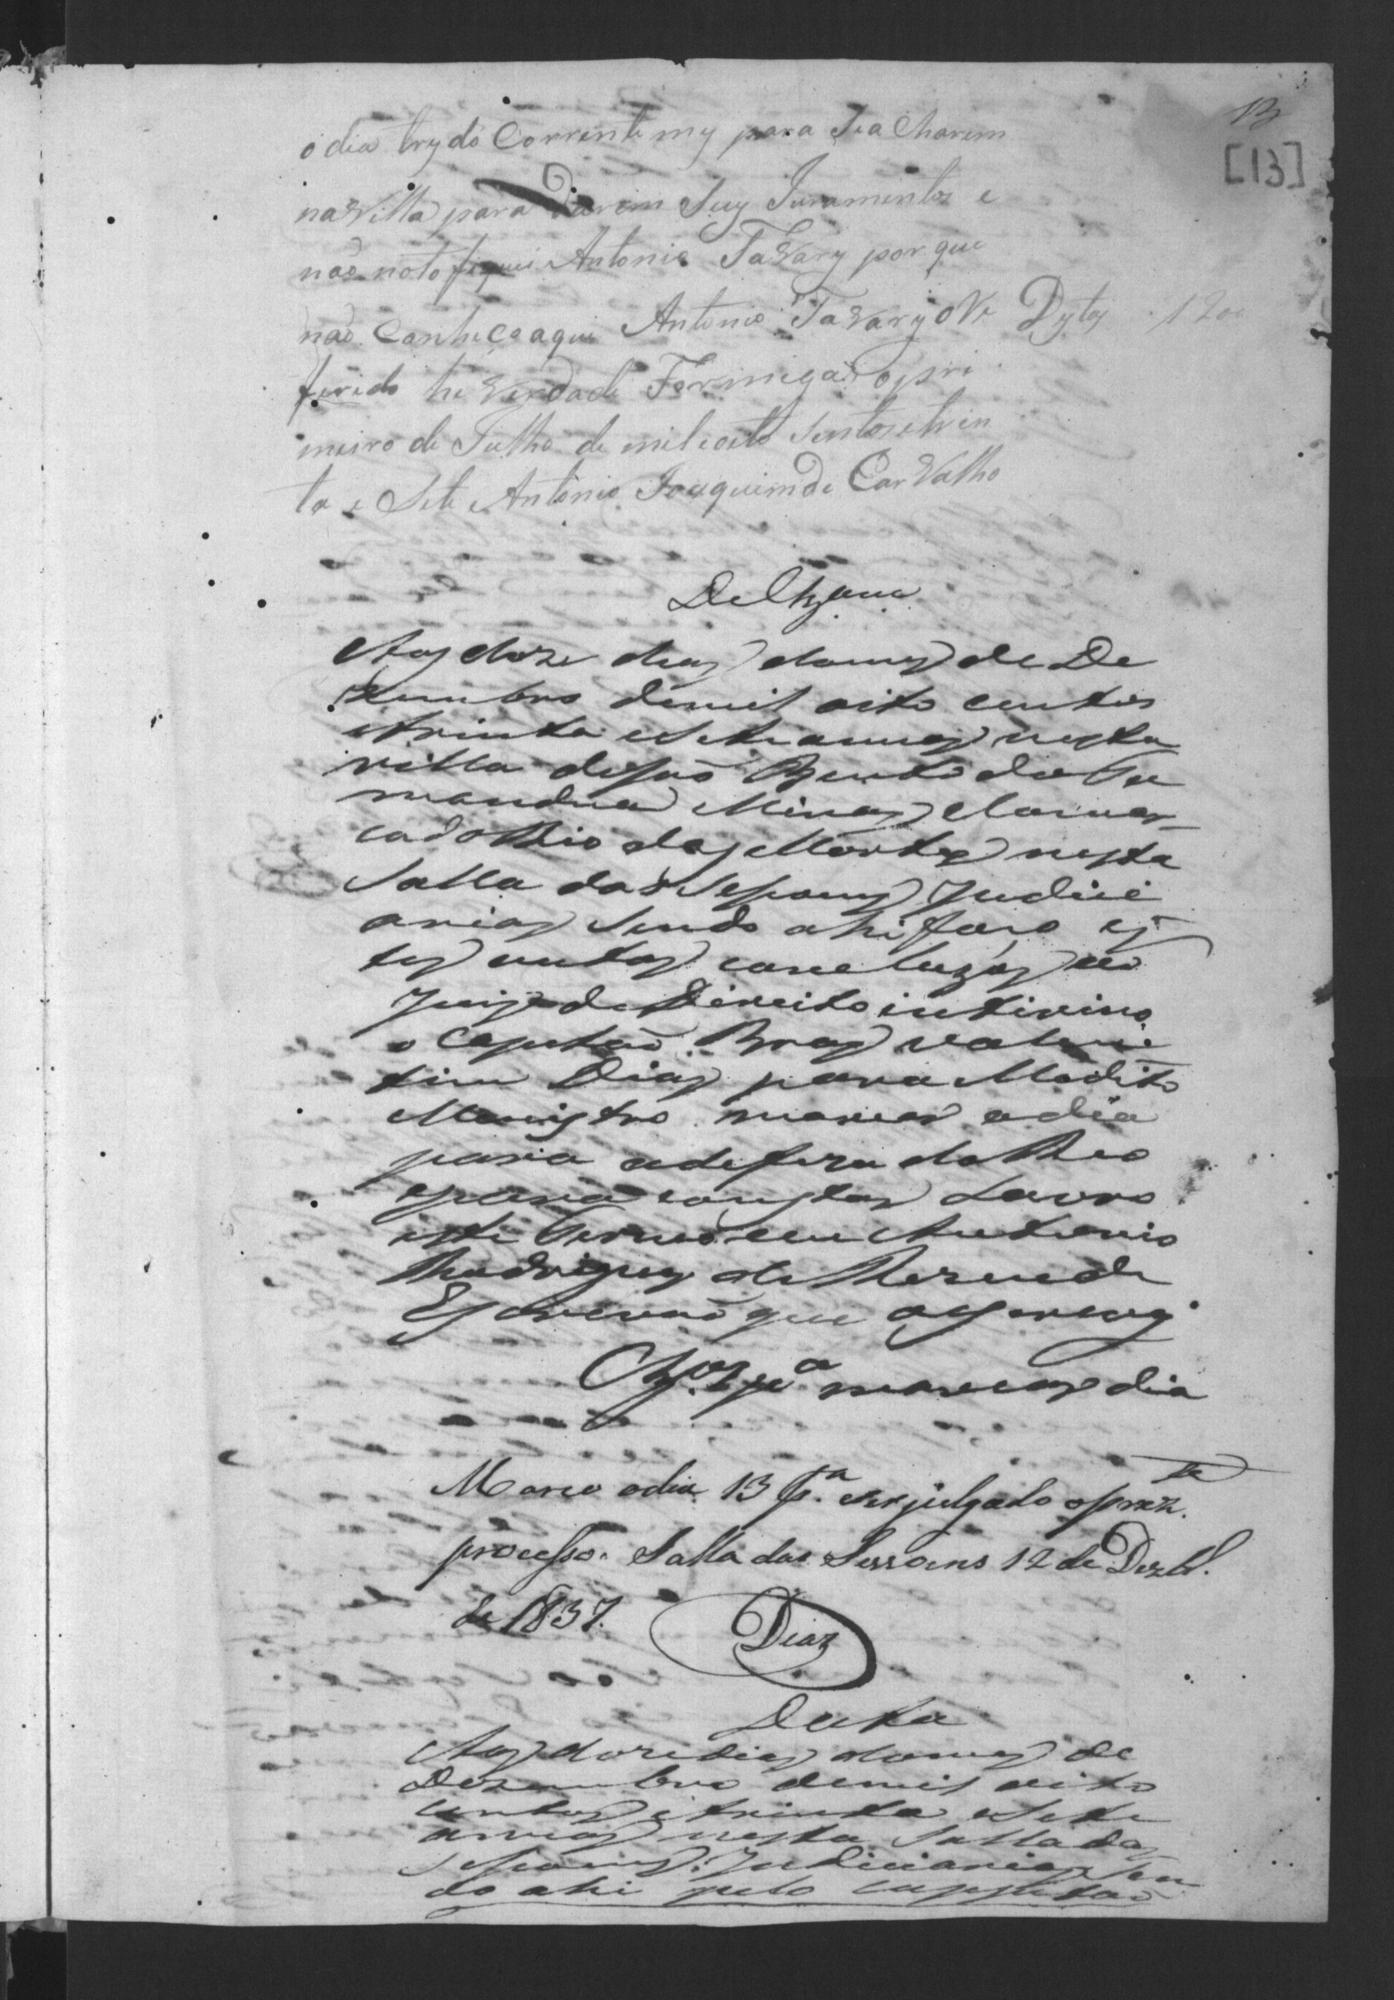 13
[13]
o dia trez do Corrente mez para Seacharem
na Villa para Darem Seuz Juramentos e
não notofiquei Antonio Tavarez porque
não Conheço aqui Antonio Tavarez o Re Dytos 1200
ferido he Verdade Formiga opri
meiro de Julho de mil eoito Sentos etrin
ta e Sete Antonio Joaquim de Carvalho
De Clzam
Aos doze dias domes de De
zembro demil oito centos
etrinta esete annos nesta
villa desaõ Bento do Ta
mandua Minas e Comar
ca do Rio das Mortes nesta
Salla das Sessoens Judici
arias sendo ahi faso es
tes autos concluzos ao
Juiz de Direito intirino
o Capitaõ Bras Valen
tim Dias para o dito
Menistro marcar odia
para adefeza do Reo
epara constar Lavro
este Termo eu Antonio
Rodrigues de Rezende
Escrevaõ que o escrevy
Clzos pa marcar dia
Marco odia 13 pa. serjulgado oprezte.
processo. Salla das Sessoens 12 de Dezbr.
de 1837. Diaz
Data
Aos doze dias domes de
Dezembro demil oito
centos etrinta esete
annos nesta Salla das
sessoens Judiciarias sen
do ahi pelo cappitaõ